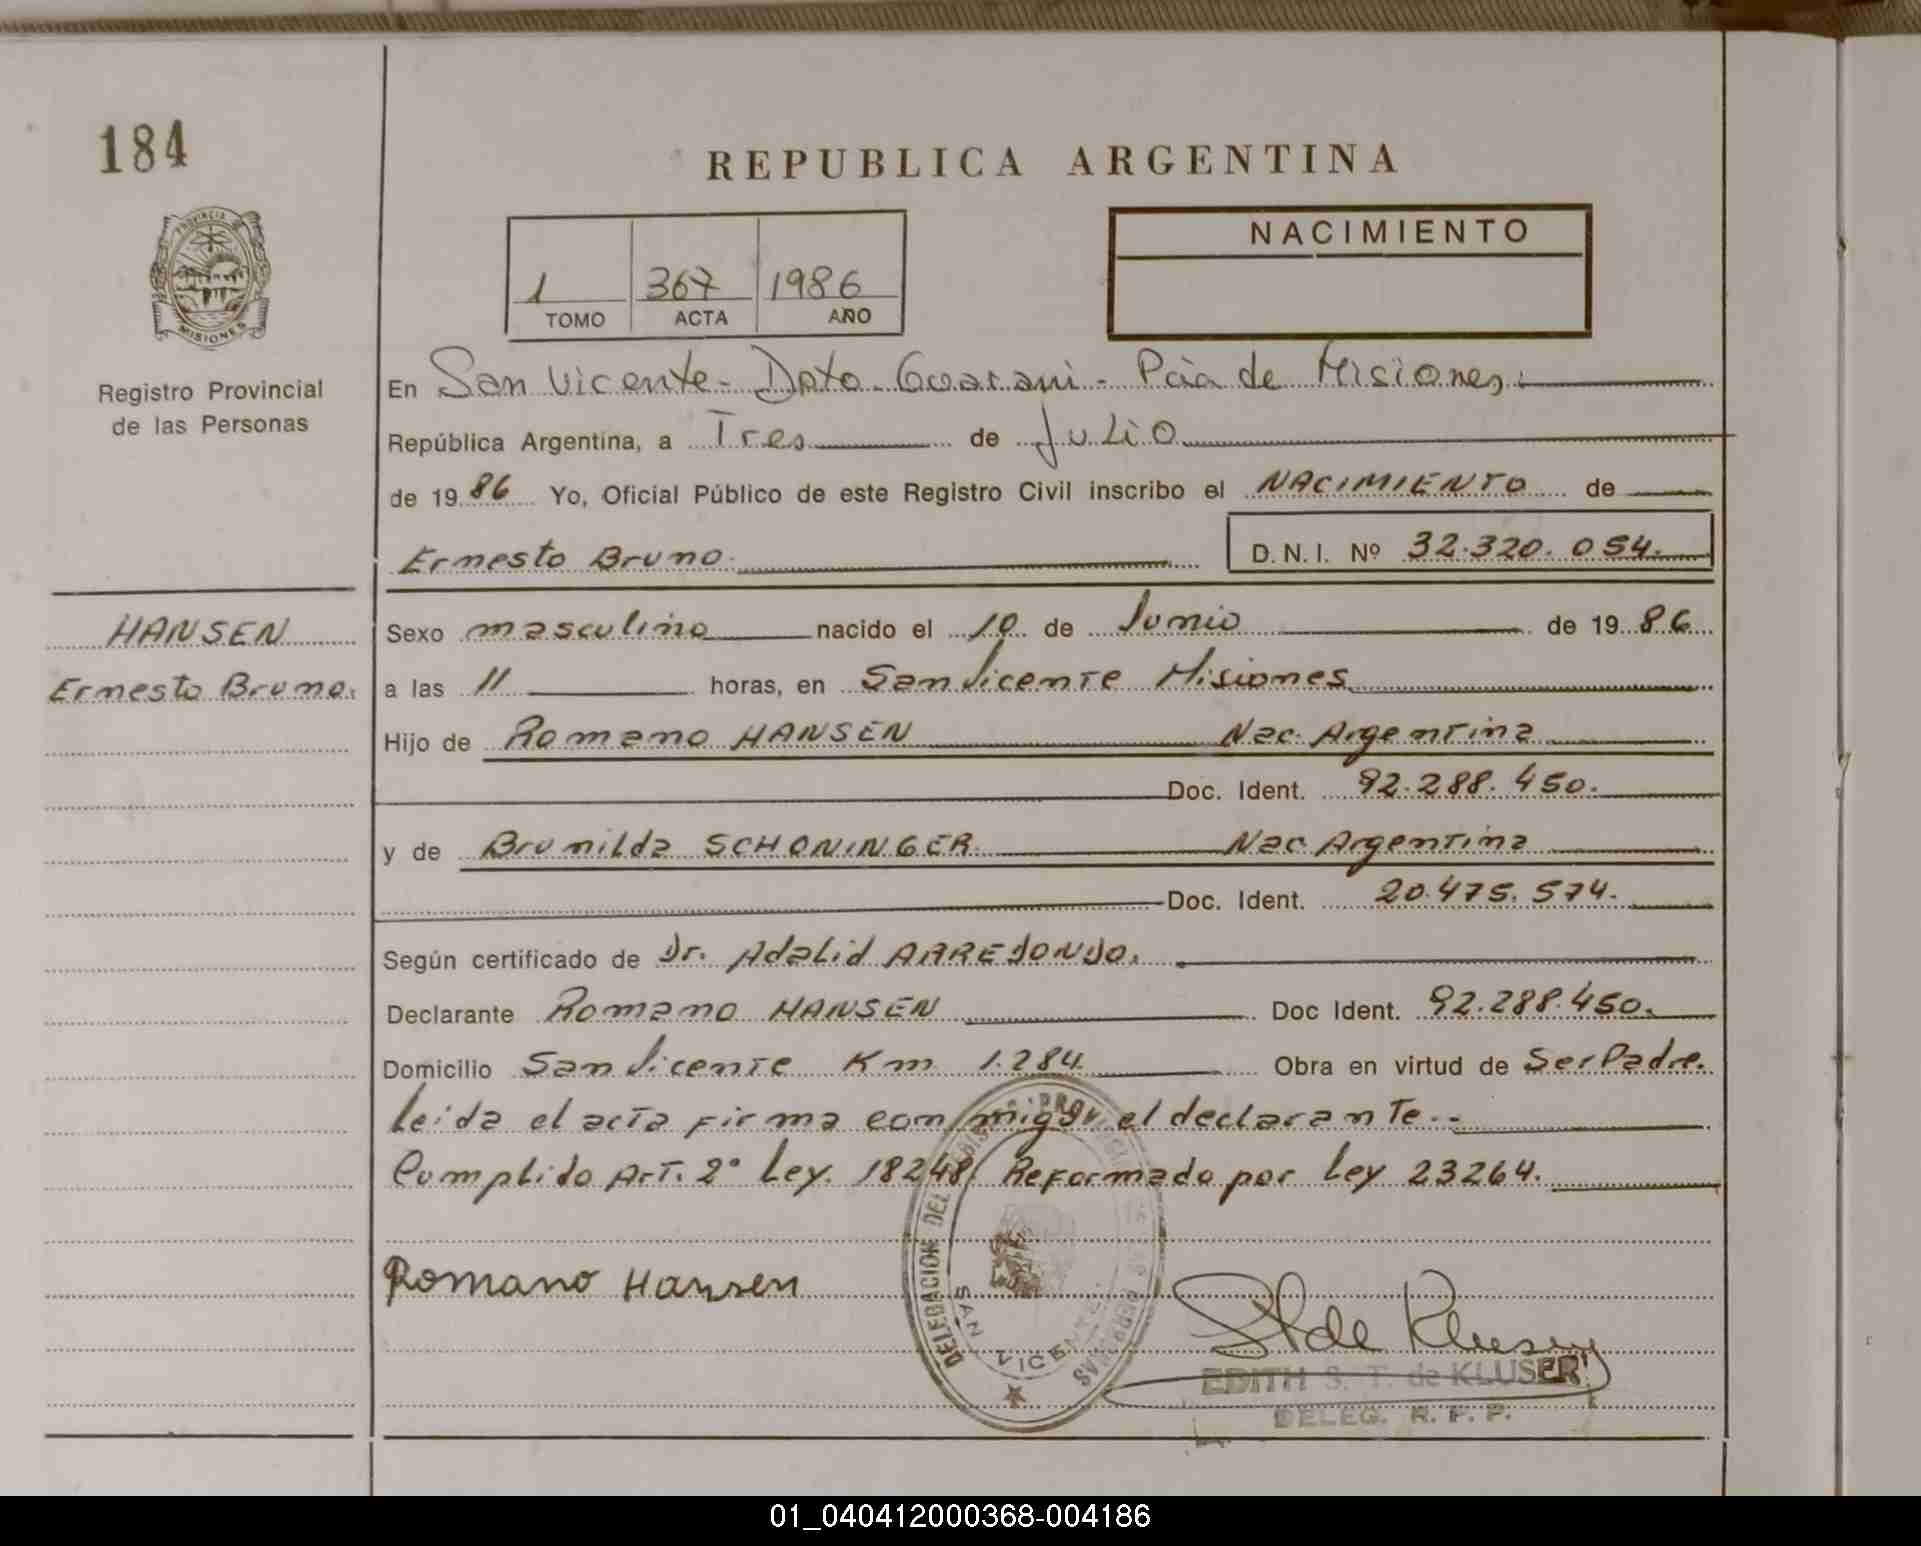 184
REPUBLICA ARGENTINA
PROVINCIA
MISIONES
Registro Provincial
de las Personas
1 367 1986
TOMO ACTA AÑO
NACIMIENTO
En San Vicente - Dpto. Guarani - Pcia de Misiones.
República Argentina, a Tres de Julio
de 1986 Yo, Oficial Público de este Registro Civil inscribo el NACIMIENTO de
Ernesto Bruno. D.N.I. Nº 32.320.054.
HANSEN
Ernesto Bruno.
Sexo masculino nacido el 10 de Junio de 1986
a las 11 horas, en San Vicente Misiones
Hijo de Romano HANSEN Nac. Argentina
Doc. Ident. 92.288.450.
y de Brunilda SCHONINGER. Nac Argentina
Doc. Ident. 20.475.574.
Según certificado de Dr. Adalid ARREDONDO.
Declarante Romano HANSEN Doc Ident. 92.288.450.
Domicilio San Vicente Km 1.284. Obra en virtud de Ser Padre.
leida el acta firma conmigo el declarante.-
Cumplido Art. 2º Ley. 18248 Reformado por Ley 23264.
Romano Hansen
DELEGACION DEL REGISTRO PROVINCIAL DE LAS PERSONAS
SAN VICENTE
St de Kluser
EDITH S. T. de KLUSER
DELEG. R. P. P.
01_040412000368-004186